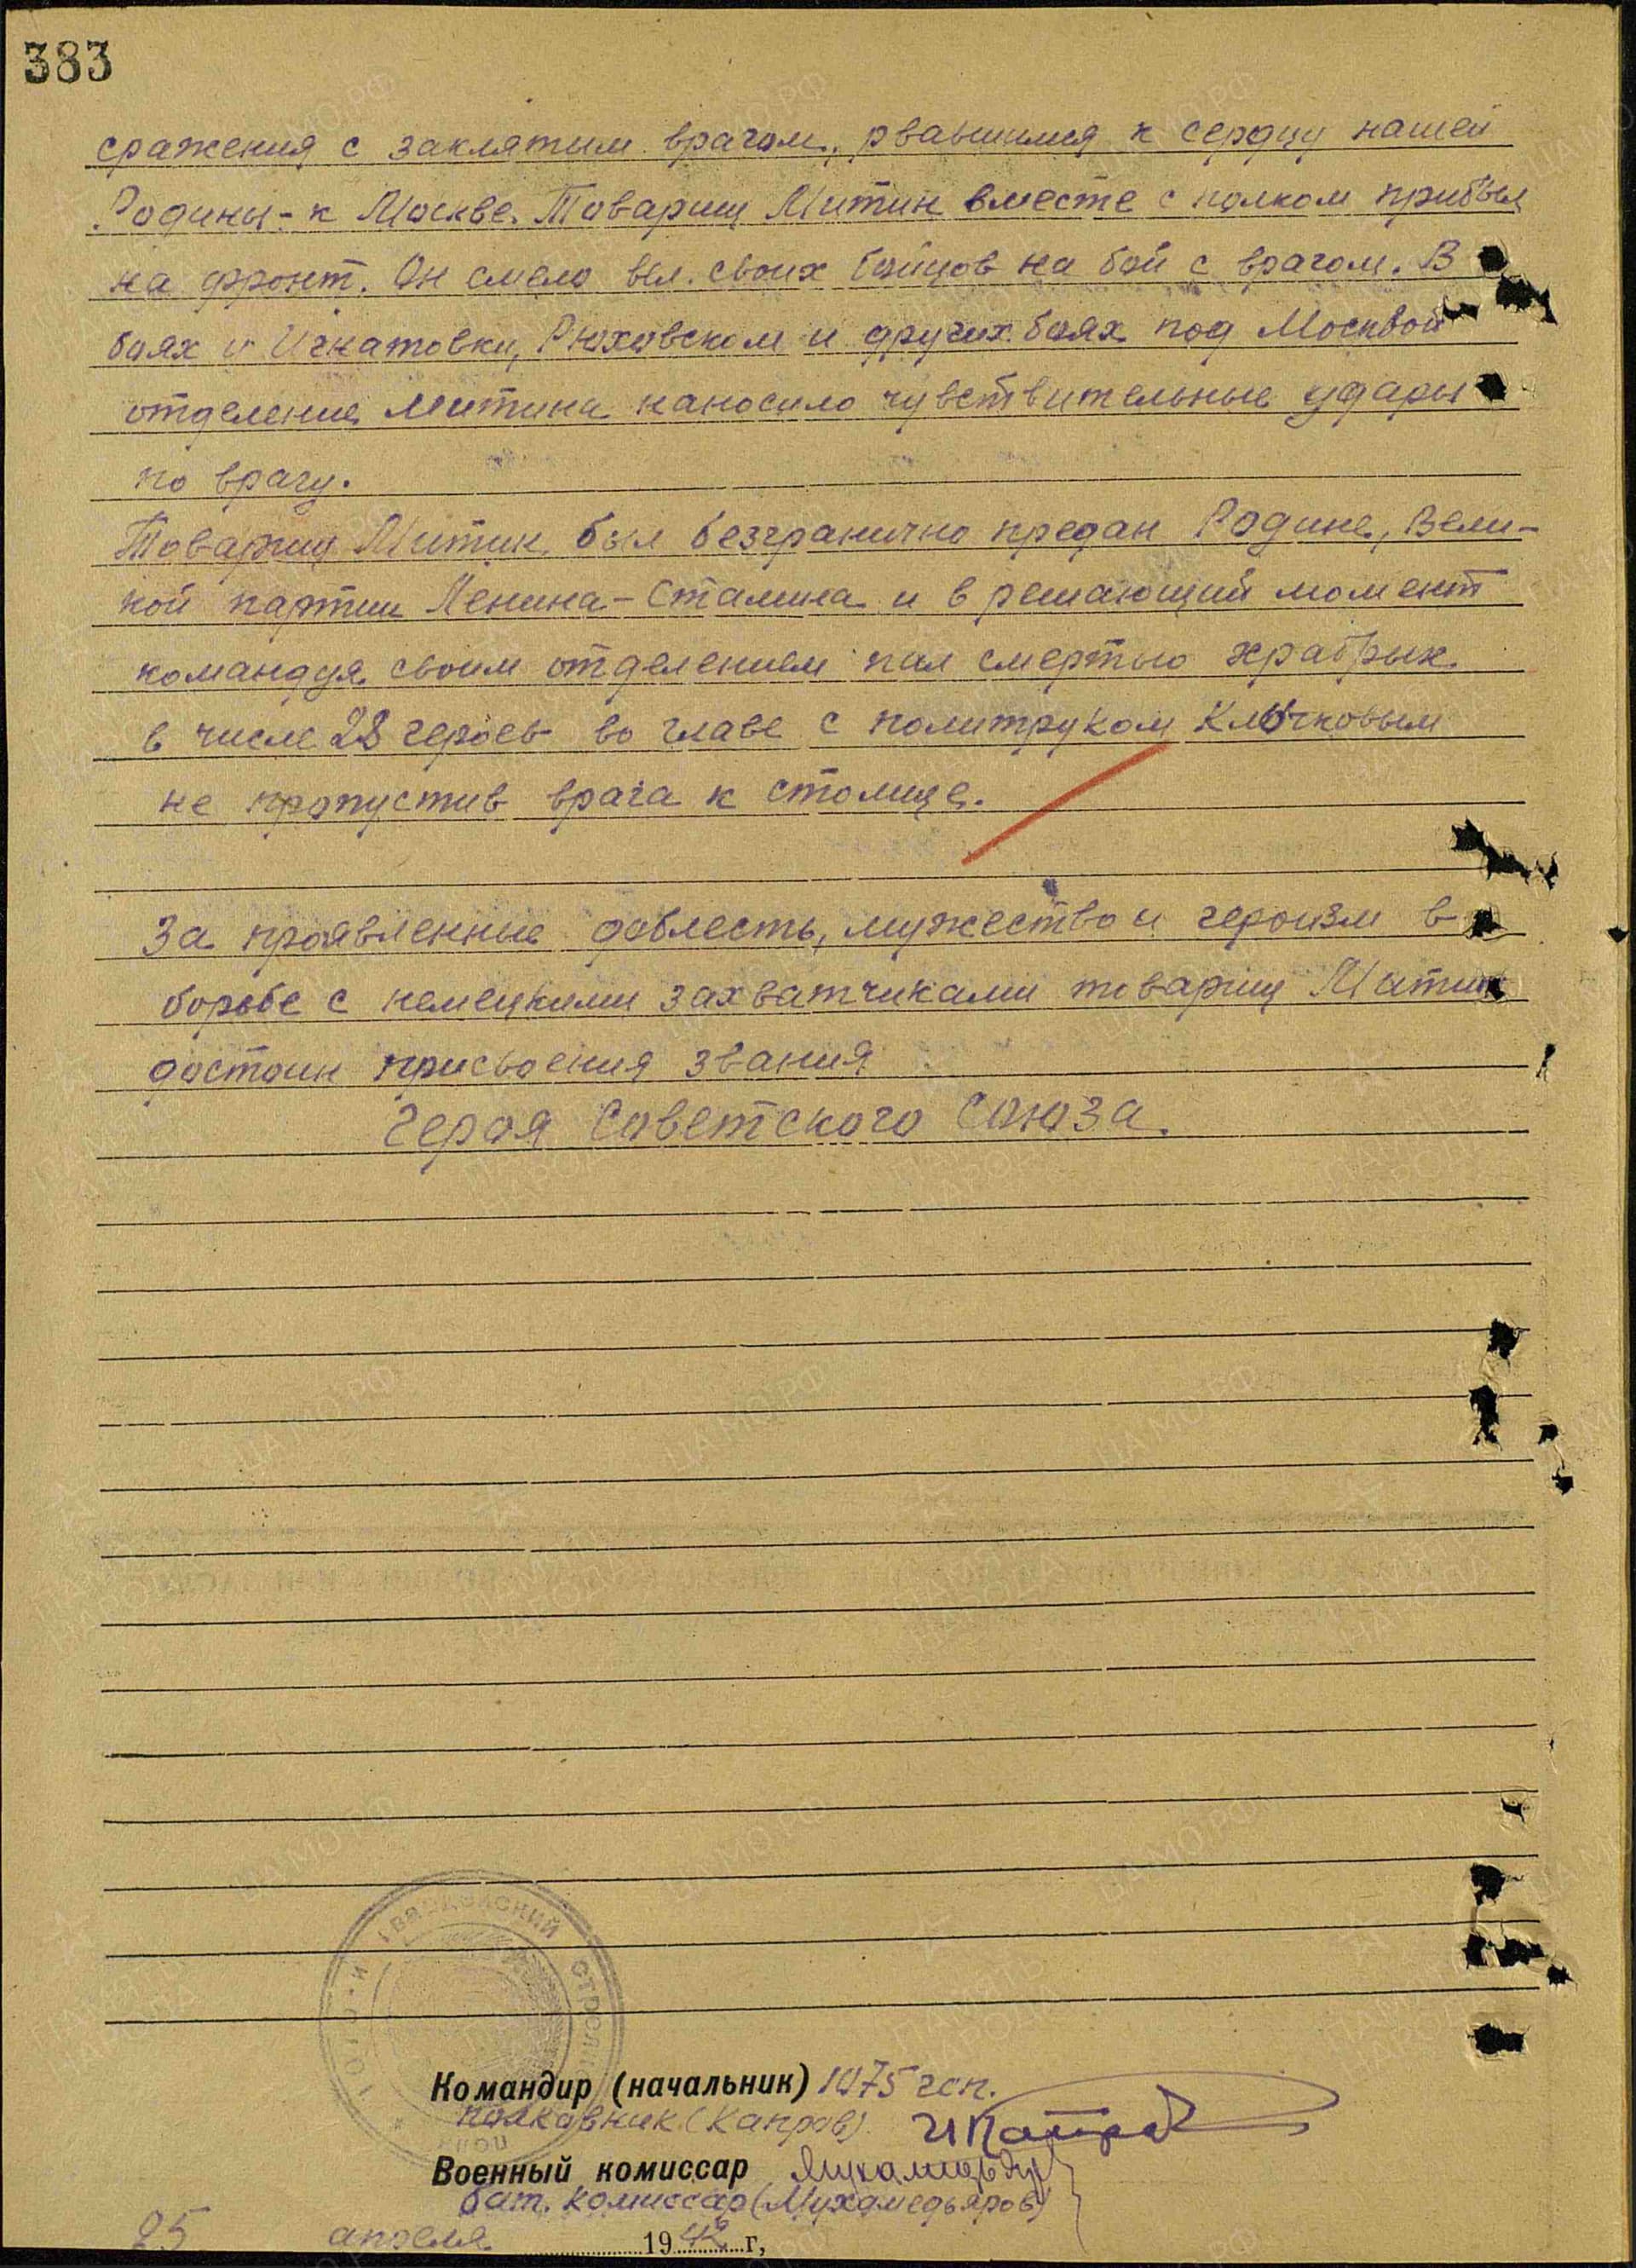 383
сражения с заклятым врагом, рвавшимся к сердцу нашей
Родины - к Москве. Товарищ Митин вместе с полком прибыл
на фронт. Он смело вел своих бойцов на бой с врагом. В
боях у Игнатовки, Рюховском и других боях под Москвой
отделение Митина наносило чувствительные удары
по врагу.
Товарищ Митин был безгранично предан Родине, Вели-
кой партии Ленина-Сталина и в решающий момент
командуя своим отделением пал смертью храбрых
в числе 28 героев во главе с политруком Клочковым
не пропустив врага к столице.
За проявленные доблесть, мужество и героизм в
борьбе с немецкими захватчиками товарищ Митин
достоин присвоения звания
Героя Советского Союза.
ГВАРДЕЙСКИЙ СТРЕЛКО
Командир (начальник) 1075 гсп.
полковник (Капров) ИКапров
Военный комиссар
бат. комиссар (Мухамедьяров)
25 апреля 1942 г,